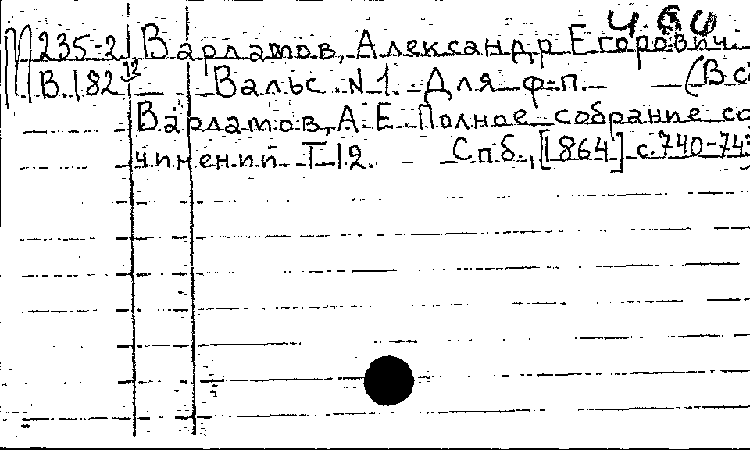 235-2 Варламов, Александр Егорович.
В.182 12 Вальс N 1. Для ф-п. (В с
Варламов, А. Е. Полное собрание со
чинений. Т-12. Спб., [1864] с. 740-743